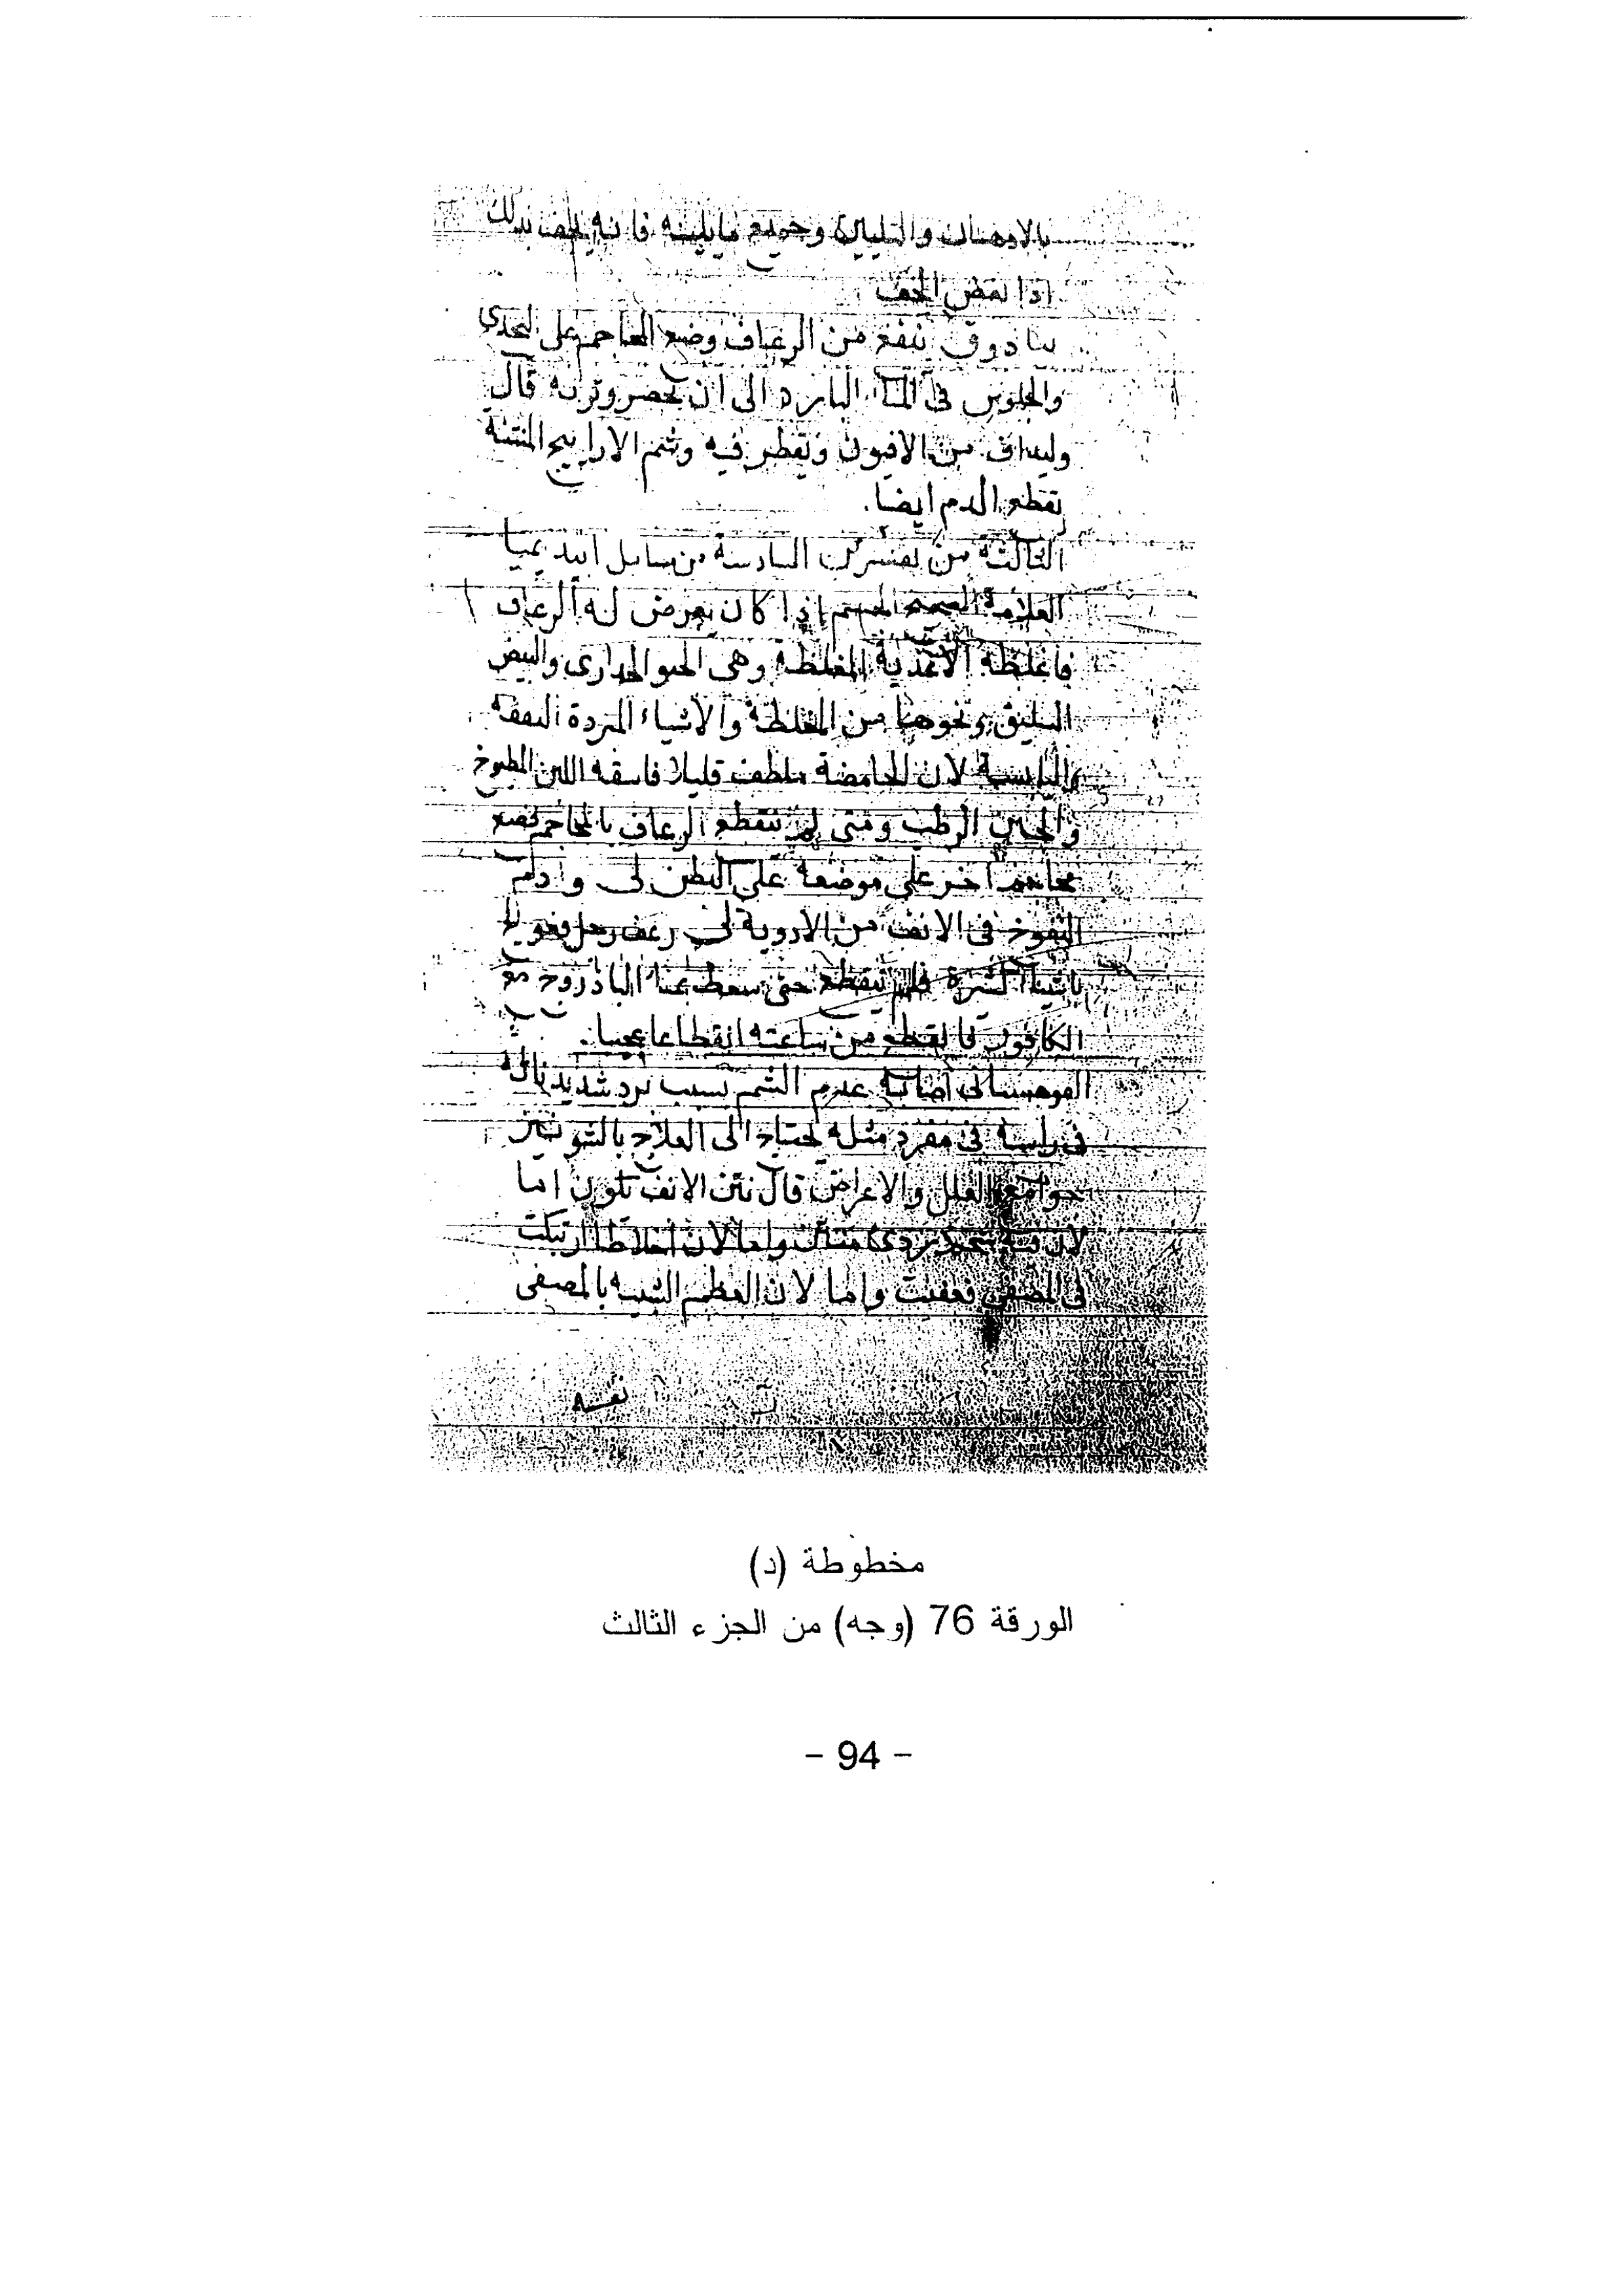 بالادهان والتليين وجميع مايلينه فانه يخف بذلك
اذا نقص الخف
بيادوق ينفع من الرعاف وضع المحاجم على الثدي
والجلوس فى الماء البارد الى ان يخصر وترنه قال
وليداف من الافيون ويقطر فيه وشم الاراييح المنتنة
يقطع الدم ايضا.
الثالثة من تفسير السادسة من مسايل ابيذيميا
العلامة الصحيح الجسم اذا كان يعرض له الرعاف
فاغلظه الاغذية المغلظة وهى الحوارى والبيض
السليق ونحوها من المغلظة والاشياء المبردة العفصة
واليابسة لان الحامضة تلطف قليلا فاسقه اللبن المطبوخ
والجبن الرطب ومتى لم ينقطع الرعاف بالمحاجم فضع
محاجم اخر على موضعه على البطن لى وادلم
النفوخ فى الانف من الادوية لى رعف رجل
باشيا كثيرة فلم ينقطع حتى سعط بماء الباذروج مع
الكافور فانقطع من ساعته انقطاعا عجيبا.
اصابه عدم الشم بسبب برد شديد ناله
فى راسه فى مفرد مثله يحتاج الى العلاج بالشونيز
جوامع العلل والاعراض قال نتن الانف تكون اما
لان فيه واما لان اخلاطا ارتبكت
فى المصفى فعفنت واما لان العظم الشبيه بالمصفى
نفسه
مخطوطة (د)
الورقة 76 (وجه) من الجزء الثالث
- 94 -